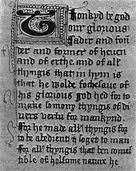 Thonkyd be god
our glorious
fader and for
der and former of heuen
and of erthe and of all
thyngis that in hym is
that he wolde
his glorious god hed for to
make somony thyngis of di
uers vertu for mankynd.
For he made all thyngis for
to be obedient & soget to man
For all thyngis that ben comes
tible of holsome nature he